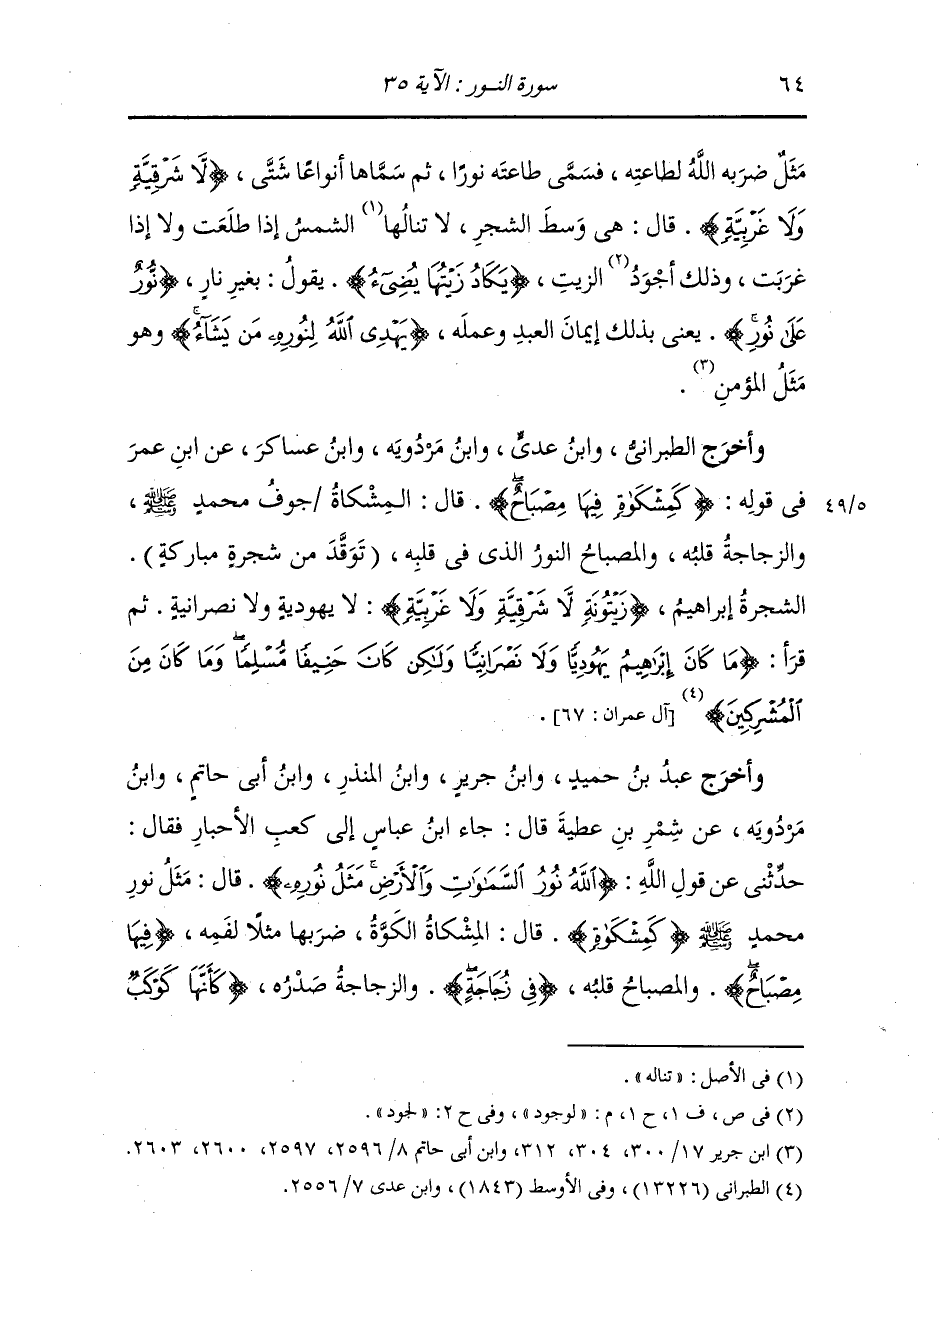 ٦٤ سورة النور : الآية ٣٥
مَثَلٌ ضرَبه اللَّهُ لطاعتِه ، فسَمَّى طاعتَه نورًا ، ثم سَمَّاها أنواعًا شَتَّى ، ﴿لَّا شَرْقِيَّةٍ
وَلَا غَرْبِيَّةٍ﴾ . قال : هى وَسطَ الشجرِ ، لا تنالُها(١) الشمسُ إذا طلَعَت ولا إذا
غرَبَت ، وذلك أجْوَدُ(٢) الزيتِ ، ﴿يَكَادُ زَيْتُهَا يُضِىٓءُ﴾ . يقولُ : بغيرِ نارٍ ، ﴿نُّورٌ
عَلَىٰ نُورٍۚ﴾ . يعنى بذلك إيمانَ العبدِ وعملَه ، ﴿يَهْدِى ٱللَّهُ لِنُورِهِۦ مَن يَشَآءُۚ﴾ وهو
مَثَلُ المؤمنِ(٣) .
وأخرَج الطبرانىُّ ، وابنُ عدىٍّ ، وابنُ مَرْدُويَه ، وابنُ عساكرَ ، عن ابنِ عمرَ
فى قولِه : ﴿كَمِشْكَوٰةٍ فِيهَا مِصْبَاحٌۖ﴾ . قال : المِشْكاةُ /جوفُ محمدٍ ﷺ ،
٤٩/٥
والزجاجةُ قلبُه ، والمصباحُ النورُ الذى فى قلبِه ، (تَوَقَّدَ من شجرةٍ مباركةٍ) .
الشجرةُ إبراهيمُ ، ﴿زَيْتُونَةٍ لَّا شَرْقِيَّةٍ وَلَا غَرْبِيَّةٍ﴾ : لا يهوديةٍ ولا نصرانيةٍ . ثم
قرَأ : ﴿مَا كَانَ إِبْرَٰهِيمُ يَهُودِيًّا وَلَا نَصْرَانِيًّا وَلَٰكِن كَانَ حَنِيفًا مُّسْلِمًاۖ وَمَا كَانَ مِنَ
ٱلْمُشْرِكِينَ﴾(٤) [آل عمران : ٦٧] .
وأخرَج عبدُ بنُ حميدٍ ، وابنُ جريرٍ ، وابنُ المنذرِ ، وابنُ أبى حاتمٍ ، وابنُ
مَرْدُويَه ، عن شِمْرِ بنِ عطيةَ قال : جاء ابنُ عباسٍ إلى كعبِ الأحبارِ فقال :
حدِّثْنى عن قولِ اللَّهِ : ﴿ٱللَّهُ نُورُ ٱلسَّمَٰوَٰتِ وَٱلْأَرْضِۚ مَثَلُ نُورِهِۦ﴾ . قال : مَثَلُ نورِ
محمدٍ ﷺ ﴿كَمِشْكَوٰةٍ﴾ . قال : المِشْكاةُ الكَوَّةُ ، ضرَبها مثلًا لفَمِه ، ﴿فِيهَا
مِصْبَاحٌۖ﴾ . والمصباحُ قلبُه ، ﴿فِى زُجَاجَةٍۖ﴾ . والزجاجةُ صَدْرُه ، ﴿كَأَنَّهَا كَوْكَبٌ
(١) فى الأصل : «تناله» .
(٢) فى ص ، ف ١، ح ١، م : «لوجود» ، وفى ح ٢: «لجود» .
(٣) ابن جرير ١٧/ ٣٠٠، ٣٠٤، ٣١٢، وابن أبى حاتم ٨/ ٢٥٩٦، ٢٥٩٧، ٢٦٠٠، ٢٦٠٣.
(٤) الطبرانى (١٣٢٢٦) ، وفى الأوسط (١٨٤٣) ، وابن عدى ٧/ ٢٥٥٦.